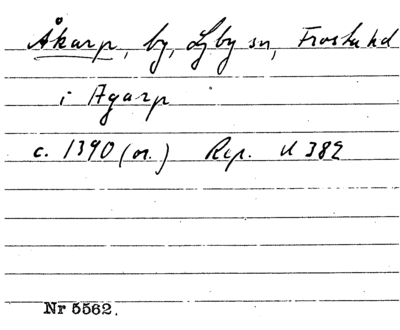 Åkarp, by, Ljby sn, Frosta hd
i Agarp
c. 1390 (or.) Rep. II 382
Nr 5562.